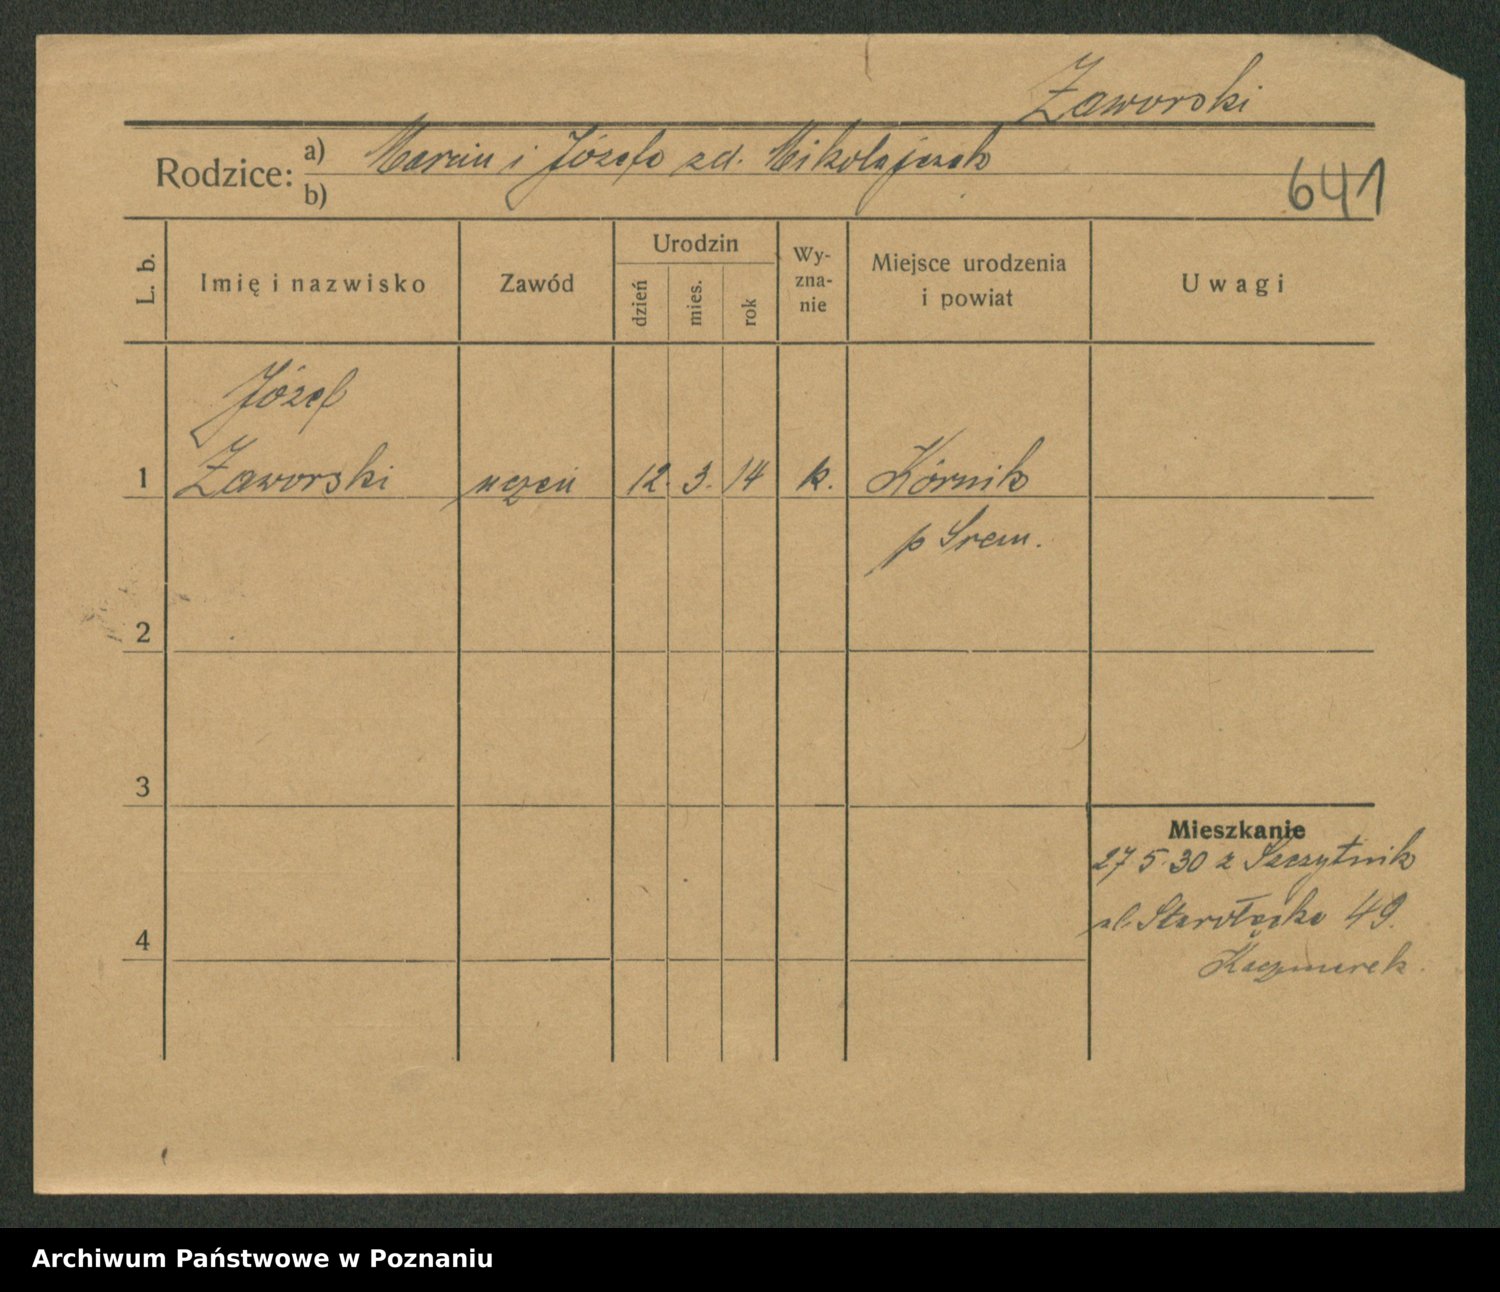 Zaworski
Rodzice: a) Marcin i Józefa zd. Mikołajczak
b)
641
L. b.
Imię i nazwisko
Zawód
Urodzin
dzień
mies.
rok
Wy-
zna-
nie
Miejsce urodzenia
i powiat
Uwagi
Józef
1 Zaworski uczeń 12. 3. 14 k. Kórnik
p Śrem.
2
3
Mieszkanie
27 5 30 z Szczytnik
ul. Starołęcka 49.
4
Kaczmarek.
Archiwum Państwowe w Poznaniu